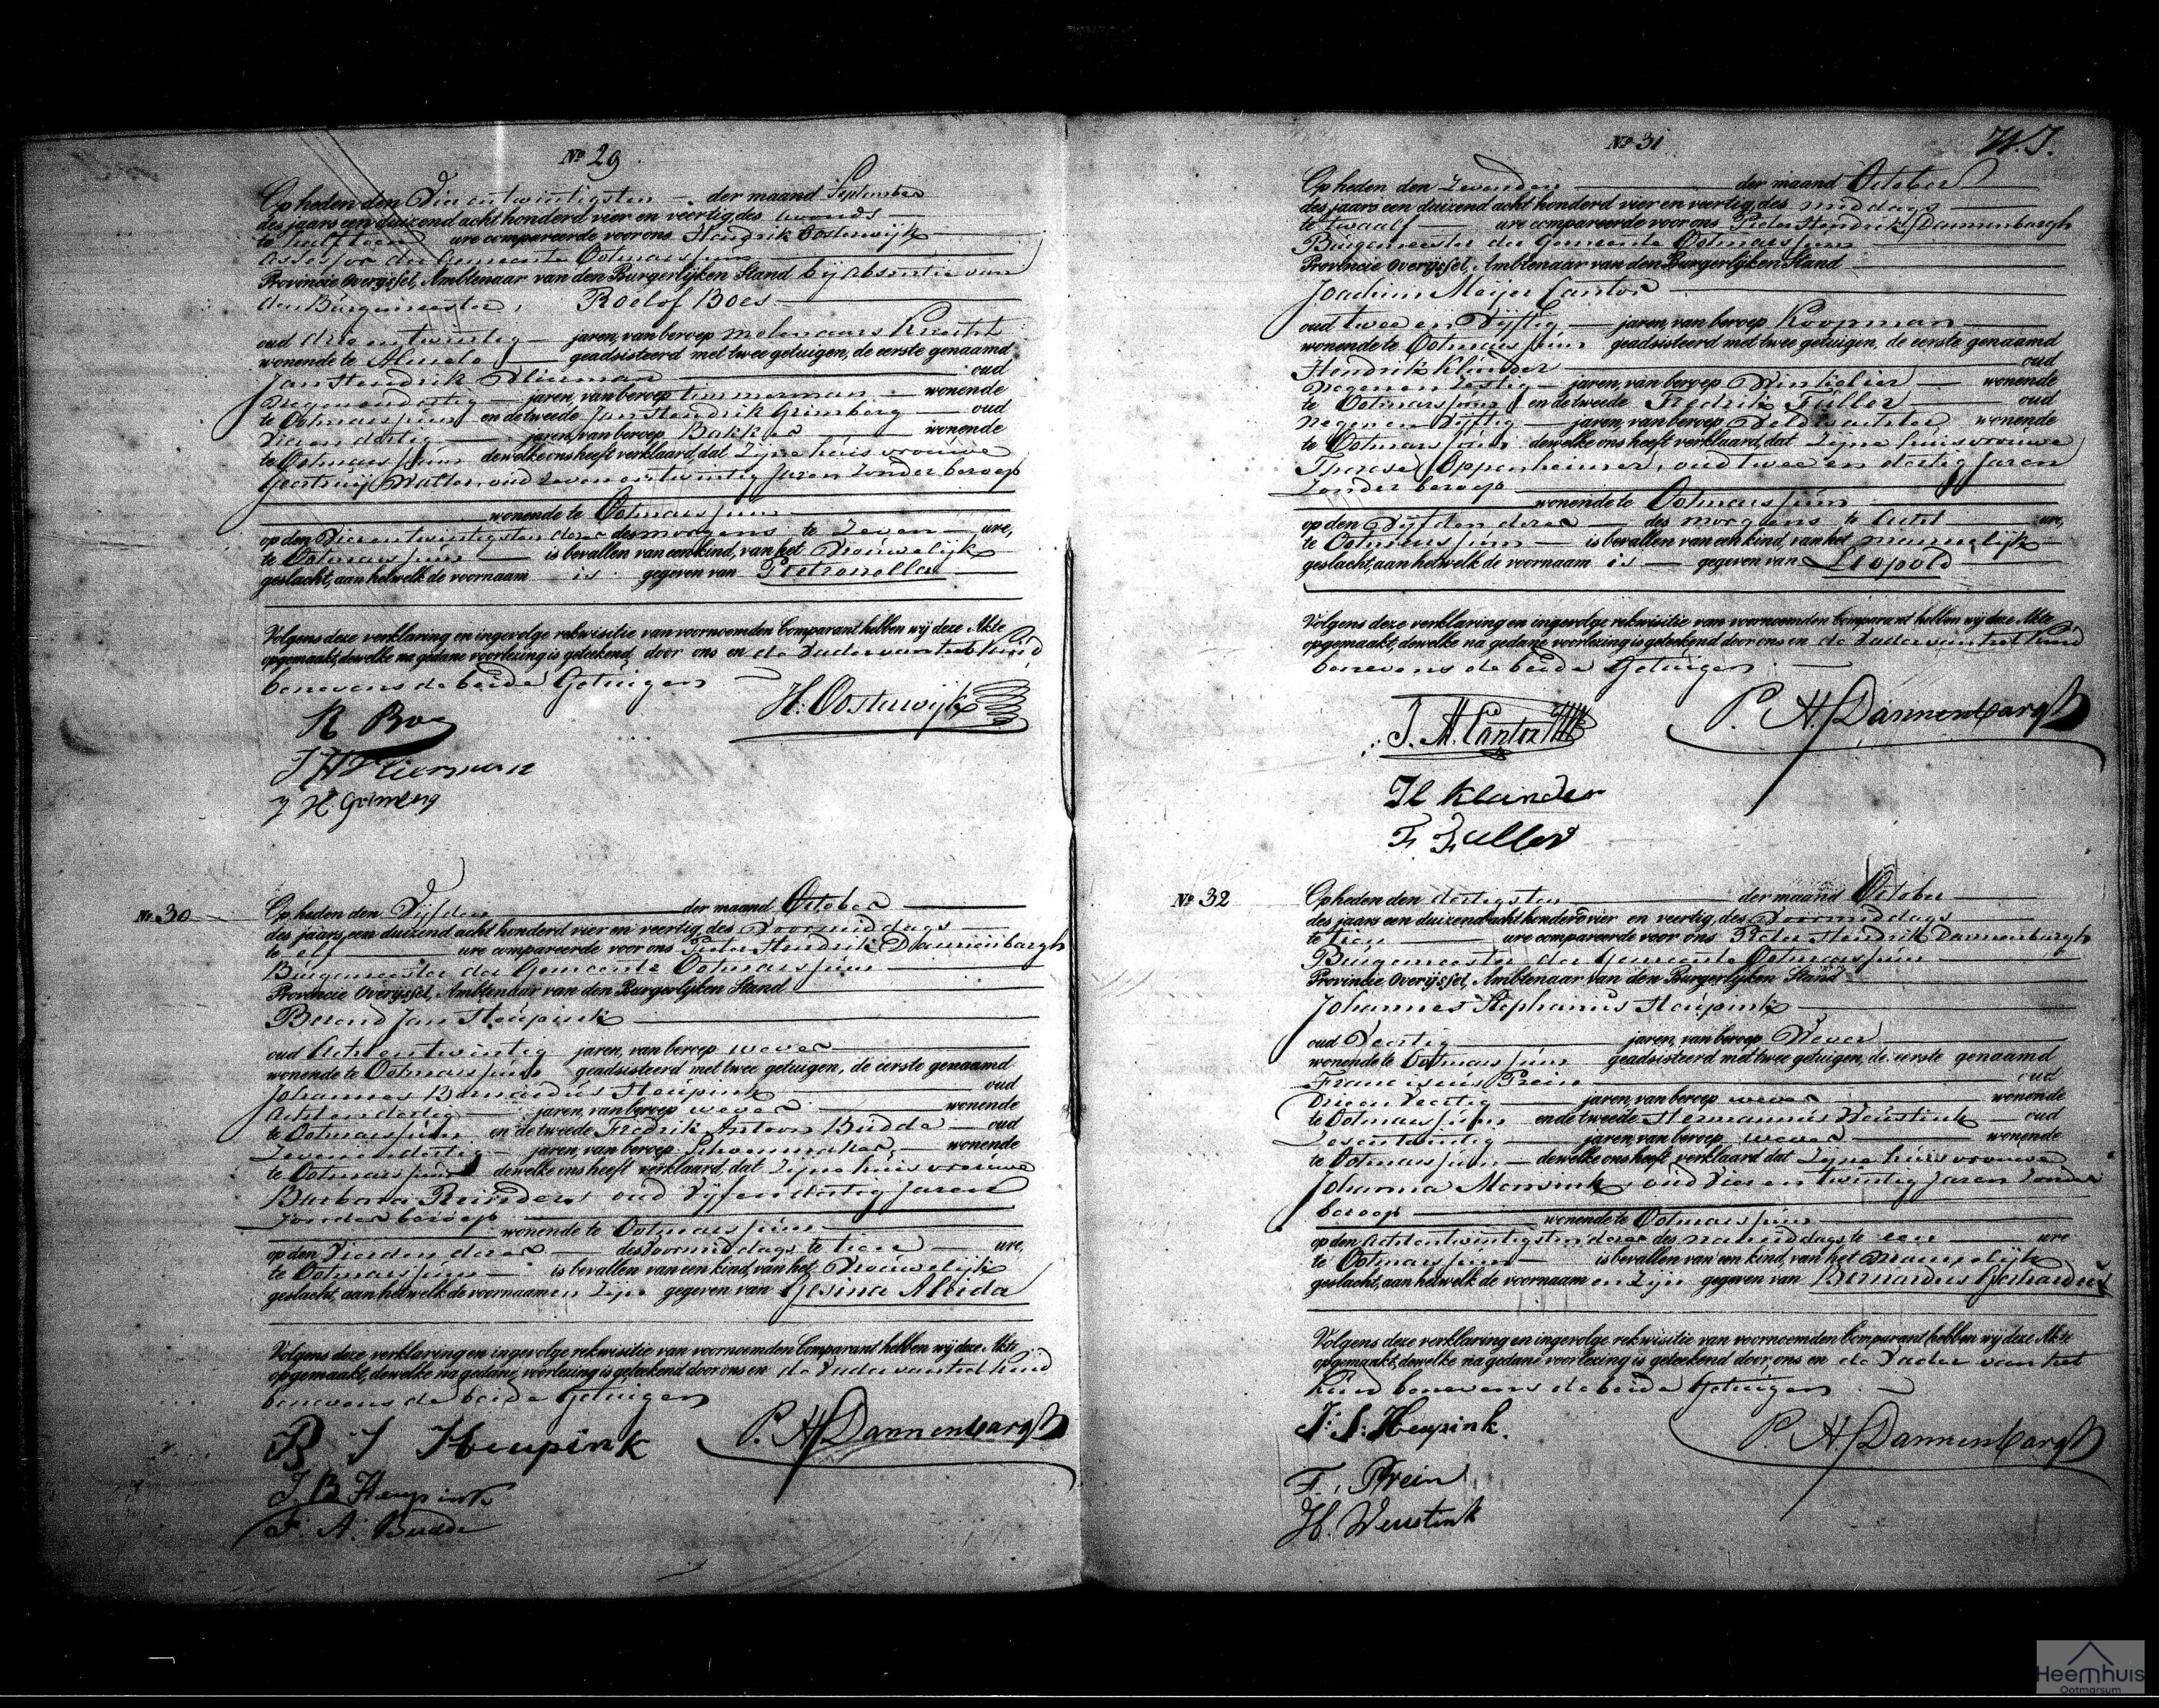 No 29.
Op heden den Vierentwintigsten der maand September
des jaars een duizend acht honderd vier en veertig, des avonds
te half tien ure compareerde voor ons Hendrik Oosterwijk
Assessor der Gemeente Ootmarssum
Provincie Overijssel, Ambtenaar van den Burgerlijken Stand bij absentie van
den Burgemeester, Roelof Boes
oud drie entwintig jaren, van beroep molenaars Knecht
wonende te Almelo geadsisteerd met twee getuigen, de eerste genaamd
Jan Hendrik oud
Negenendertig jaren, van beroep timmerman wonende
te Ootmarssum en de tweede Jan Hendrik Grimberg oud
Vierendertig jaren, van beroep Bakker wonende
te Ootmarssum dewelke ons heeft verklaard, dat Zijne huisvrouwe
Geertruij oud Zevenentwintig Jaren Zonder beroep
wonende te Ootmarssum
op den Vierentwintigsten dezer des morgens te Zeven ure,
te Ootmarssum is bevallen van een kind, van het Vrouwelijk
geslacht, aan hetwelk de voornaam is gegeven van Pietronella
Volgens deze verklaring en ingevolge rekwisitie van voornoemden Comparant hebben wij deze Akte
opgemaakt, dewelke na gedane voorlezing is geteekend door ons en de Vader van het Kind
benevens de beide Getuigen
H: Oosterwijk
R Boes
J H
J H Grimberg
No 30
Op heden den Vijfden der maand October
des jaars een duizend acht honderd vier en veertig, des Voormiddags
te elf ure compareerde voor ons Pieter Hendrik Dannenbargh
Burgemeester der Gemeente Ootmarssum
Provincie Overijssel, Ambtenaar van den Burgerlijken Stand
Berend Jan Heupink
oud Achtentwintig jaren, van beroep wever
wonende te Ootmarssum geadsisteerd met twee getuigen, de eerste genaamd
Johannes Bernardus Heupink oud
Achtendertig jaren, van beroep wever wonende
te Ootmarssum en de tweede Fredrik Antoon Budde oud
Zevenendertig jaren, van beroep Schoenmaker wonende
te Ootmarssum dewelke ons heeft verklaard, dat Zijne huisvrouwe
Barbara Reinders oud Vijfendertig Jaren
Zonder beroep wonende te Ootmarssum
op den Vierden dezer des Voormiddags te tien ure,
te Ootmarssum is bevallen van een kind, van het Vrouwelijk
geslacht, aan hetwelk de voornaamen Zijn gegeven van Gesina Aleida
Volgens deze verklaring en ingevolge rekwisitie van voornoemden Comparant hebben wij deze Akte
opgemaakt, dewelke na gedane voorlezing is geteekend door ons en de Vader van het Kind
benevens de beide Getuigen
P. H. Dannenbargh
B J Heupink
J. B Heupink
F. A. Budde
No 31
Op heden den Zevenden der maand October
des jaars een duizend acht honderd vier en veertig, des middags
te twaalf ure compareerde voor ons Pieter Hendrik Dannenbargh
Burgemeester der Gemeente Ootmarssum
Provincie Overijssel, Ambtenaar van den Burgerlijken Stand
Joachim Meijer Cantor
oud twee en Vijftig jaren, van beroep Koopman
wonende te Ootmarssum geadsisteerd met twee getuigen, de eerste genaamd
Hendrik Klander oud
Negenenzestig jaren, van beroep Winkelier wonende
te Ootmarssum en de tweede Fredrik Fuller oud
Negenen Vijftig jaren, van beroep Veldwachter wonende
te Ootmarssum dewelke ons heeft verklaard, dat Zijne huisvrouwe
Therese Oppenheimer, oud twee en dertig Jaren
Zonder beroep
wonende te Ootmarssum
op den Vijfden dezer des morgens te Acht ure,
te Ootmarssum is bevallen van een kind, van het mannelijk
geslacht, aan hetwelk de voornaam is gegeven van Leopold
Volgens deze verklaring en ingevolge rekwisitie van voornoemden Comparant hebben wij deze Akte
opgemaakt, dewelke na gedane voorlezing is geteekend door ons en de Vader van het Kind
benevens de beide Getuigen
P. H. Dannenbargh
J. M. Cantor
H Klander
F. Fuller
No 32
Op heden den dertigsten der maand October
des jaars een duizend acht honderd vier en veertig, des Voormiddags
te tien ure compareerde voor ons Pieter Hendrik Dannenbargh
Burgemeester der Gemeente Ootmarssum
Provincie Overijssel, Ambtenaar van den Burgerlijken Stand
Johannes Stephanus Heupink
oud Veertig jaren, van beroep Wever
wonende te Ootmarssum geadsisteerd met twee getuigen, de eerste genaamd
Franciscus Prein oud
Drieen Veertig jaren, van beroep wever wonende
te Ootmarssum en de tweede Hermannus Weustink oud
jaren, van beroep wever wonende
te Ootmarssum dewelke ons heeft verklaard dat Zijne huisvrouwe
Johanna oud Vier en twintig Jaren Zonder
beroep wonende te Ootmarssum
op den Achtentwintigsten dezer des namiddags te een ure
te Ootmarssum is bevallen van een kind, van het Mannelijk
geslacht, aan hetwelk de voornaamen Zijn gegeven van Bernardus Gerhardus
Volgens deze verklaring en ingevolge rekwisitie van voornoemden Comparant hebben wij deze Akte
opgemaakt, dewelke na gedane voorlezing is geteekend door ons en de Vader van het
Kind benevens de beide Getuigen
P. H. Dannenbargh
J: S: Heupink.
F. Prein
H. Weustink
Heemhuis
Ootmarsum